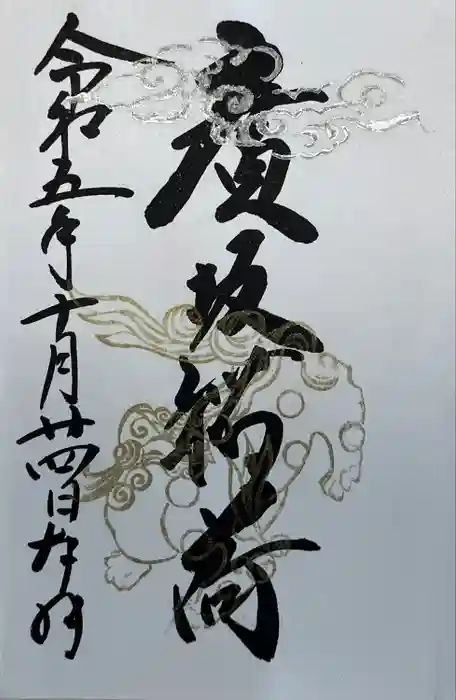 廣坂稲荷
令和五年十月廿四日奉拝